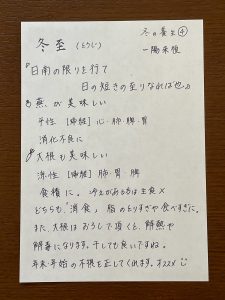 冬の養生④
一陽来復
冬至(とうじ)
日南の限りを行て
日の短きの至りなれば也。
蕪が美味しい
平性 [帰経] 心・肺・脾・胃
消化不良に
大根も美味しい
涼性 [帰経] 肺・胃・脾
食積に。冷えがある方は生食×
どちらも「消食」 脂のとりすぎや食べすぎに。
また、大根はおろして頂くと、解熱や
解毒になります。干しても良いですね。
年末年始の不根を正してくれます。オススメ